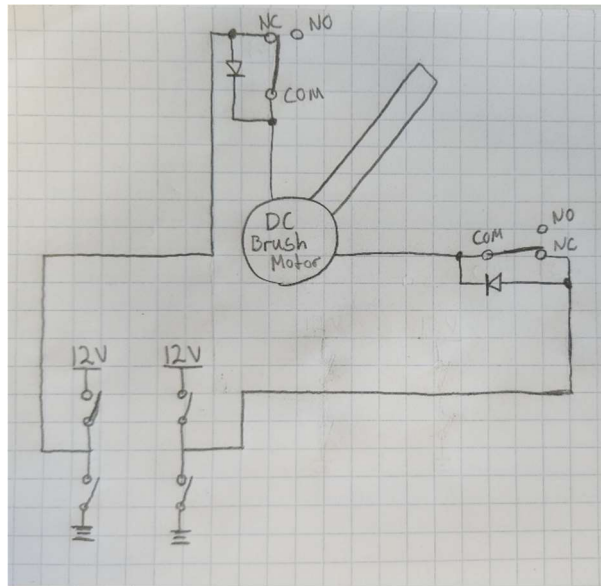 NC NO
COM
DC
Brush
Motor
NO
COM
NC
12V
12V